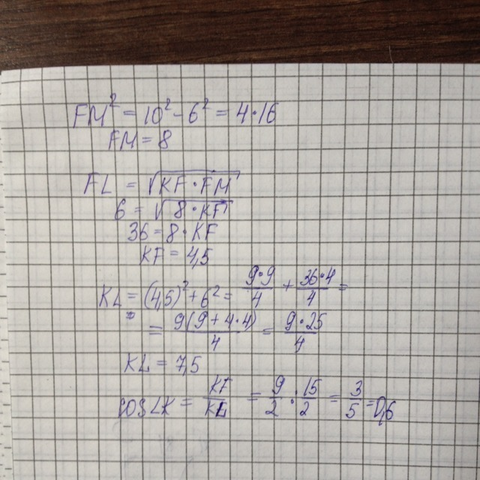 FM² = 10² - 6² = 4·16
FM = 8
FL = √KF·FM
6 = √8·KF
36 = 8·KF
KF = 4,5
KL² = (4,5)² + 6² = 9·9/4 + 36·4/4 =
= 9(9+4·4)/4 = 9·25/4
KL = 7,5
cos∠K = KF/KL = 9/2 : 15/2 = 3/5 = 0,6